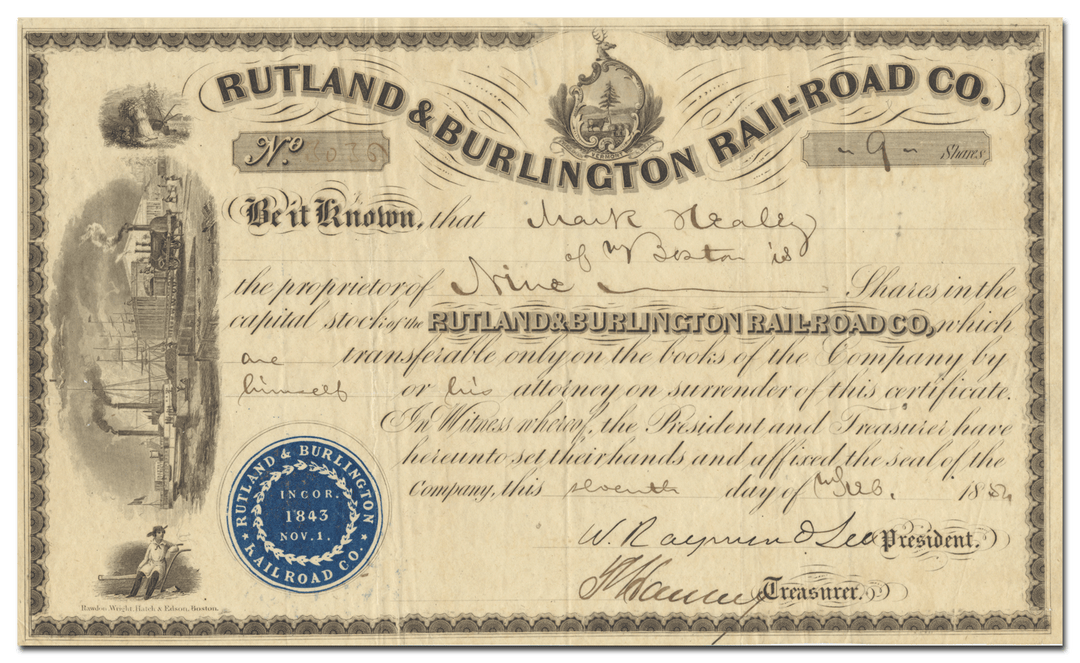 RUTLAND & BURLINGTON RAIL-ROAD CO.
VERMONT
No
- 9 - Shares
Be it Known, that Mark Healey
of Boston is
the proprietor of Nine Shares in the
capital stock of the RUTLAND & BURLINGTON RAIL-ROAD CO, which
are transferable only on the books of the Company by
himself or his attorney on surrender of this certificate.
In Witness whereof, the President and Treasurer have
hereunto set their hands and affixed the seal of the
Company, this seventh day of Feb. 185
RUTLAND & BURLINGTON
RAILROAD CO.
INCOR.
1843
NOV. 1.
W. Raymond Lee President.
Treasurer.
Rawdon, Wright, Hatch & Edson, Boston.